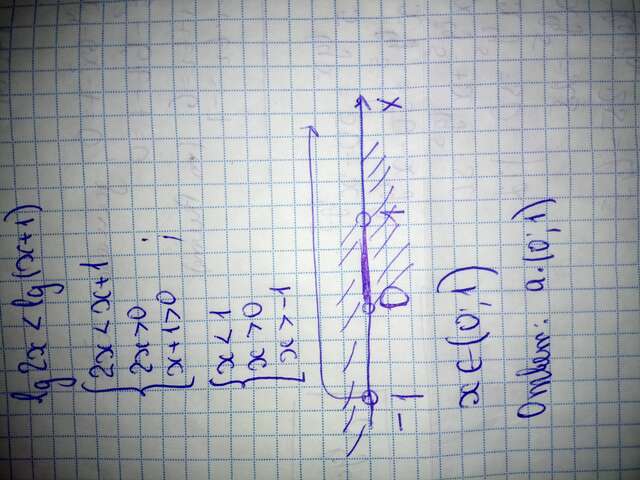 lg2x < lg(x+1)
{2x < x+1
2x > 0 ;
x+1 > 0 ;
{x < 1
x > 0
x > -1
-1 0 1 x
x ∈ (0; 1)
Ответ: а. (0; 1)